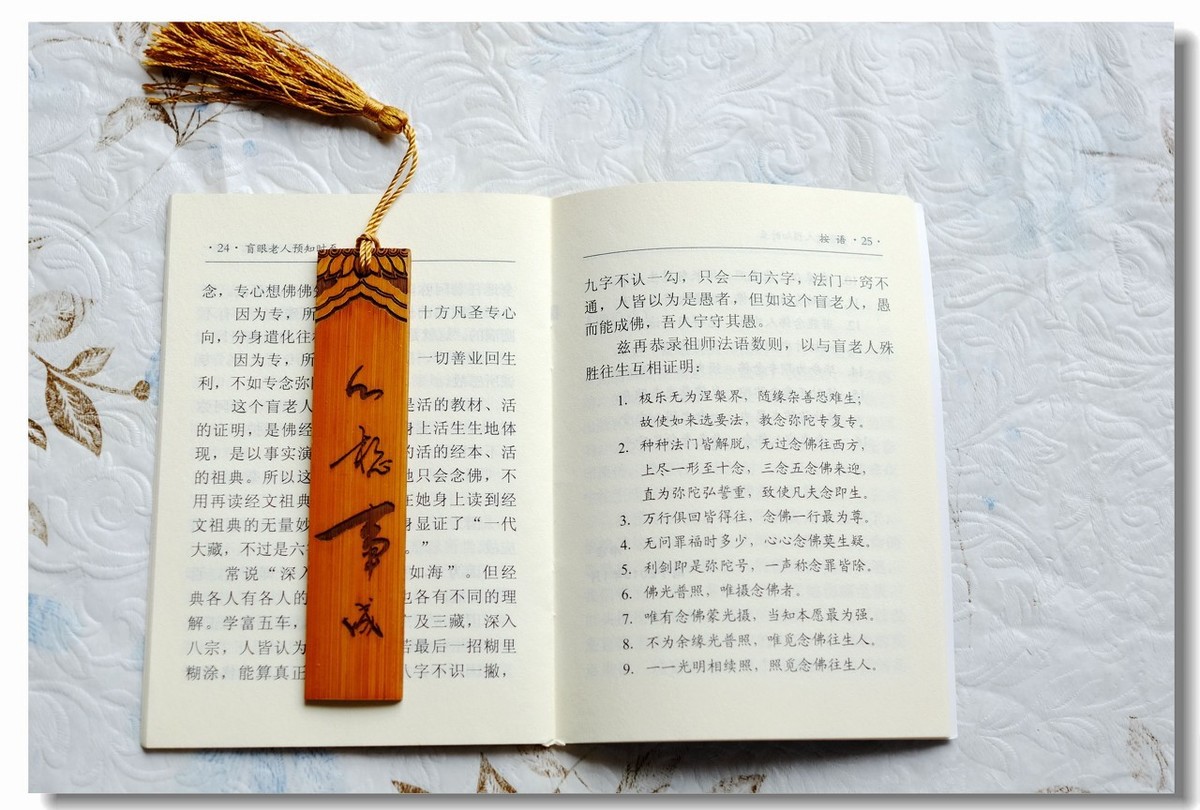 · 24 · 盲眼老人预知时至
念，专心想佛佛
因为专，所 十方凡圣专心
向，分身遣化往
因为专，所 一切善业回生
利，不如专念弥
这个盲老人 是活的教材、活
的证明，是佛经 身上活生生地体
现，是以事实演 的活的经本、活
的祖典。所以这 他只会念佛，不
用再读经文祖典 在她身上读到经
文祖典的无量妙 身显证了“一代
大藏，不过是六 。”
常说“深入 如海”。但经
典各人有各人的 也各有不同的理
解。学富五车， 广及三藏，深入
八宗，人皆认为 若最后一招糊里
糊涂，能算真正 八字不识一撇，
心稳事成
按 语 · 25 ·
九字不认一勾，只会一句六字，法门一窍不
通，人皆以为是愚者，但如这个盲老人，愚
而能成佛，吾人宁守其愚。
兹再恭录祖师法语数则，以与盲老人殊
胜往生互相证明：
1. 极乐无为涅槃界，随缘杂善恐难生；
故使如来选要法，教念弥陀专复专。
2. 种种法门皆解脱，无过念佛往西方，
上尽一形至十念，三念五念佛来迎，
直为弥陀弘誓重，致使凡夫念即生。
3. 万行俱回皆得往，念佛一行最为尊。
4. 无问罪福时多少，心心念佛莫生疑。
5. 利剑即是弥陀号，一声称念罪皆除。
6. 佛光普照，唯摄念佛者。
7. 唯有念佛蒙光摄，当知本愿最为强。
8. 不为余缘光普照，唯觅念佛往生人。
9. 一一光明相续照，照觅念佛往生人。